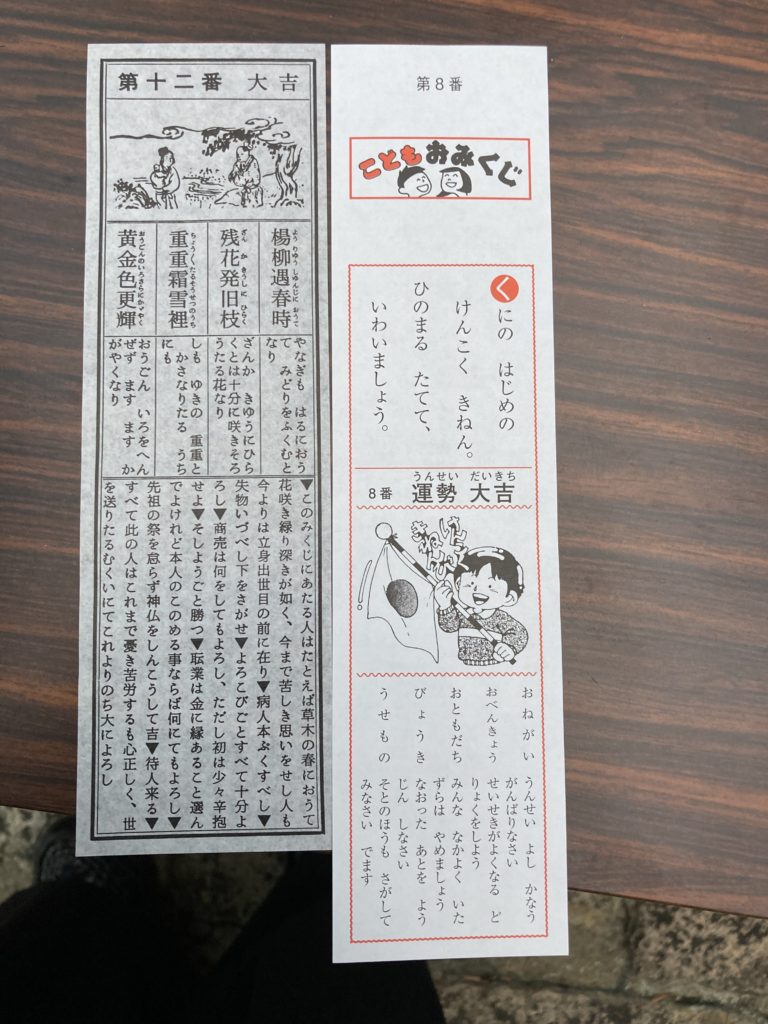 第十二番 大吉
楊柳遇春時
ようりゆうしゆんじにおうて
残花発旧枝
ざんかきうしにひらく
重重霜雪裡
ちょうくたるそうせつのうち
黄金色更輝
おうごんのいろさらにかゞやく
やなぎも はるにおう
て みどりをふくむと
なり
ざんか きゆうにひら
くとは十分に咲きそろ
うたる花なり
しも ゆきの 重重と
かさなりたる うち
にも
おうごん いろをへん
ぜず ます ます か
がやくなり
▼このみくじにあたる人はたとえば草木の春におうて
花咲き緑り深きが如く、今まで苦しき思いをせし人も
今よりは立身出世目の前に在り▼病人本ぷくすべし▼
失物いづべし下をさがせ▼よろこびごとすべて十分よ
ろし▼商売は何をしてもよろし、ただし初は少々辛抱
せよ▼そしようごと勝つ▼転業は金に縁あること選ん
でよけれど本人のこのめる事ならば何にてもよろし▼
先祖の祭を怠らず神仏をしんこうして吉▼待人来る▼
すべて此の人はこれまで憂き苦労するも心正しく、世
を送りたるむくいにてこれよりのち大によろし
第8番
こどもおみくじ
くにの はじめの
けんこく きねん。
ひのまる たてて、
いわいましょう。
うんせい だいきち
8番 運勢 大吉
けんこく
きねんび
おねがい うんせい よし かなう
がんばりなさい
おべんきょう せいせきがよくなる ど
りょくをしよう
おともだち みんな なかよく いた
ずらは やめましょう
びょうき なおった あとを よう
じん しなさい
うせもの そとのほうも さがして
みなさい でます